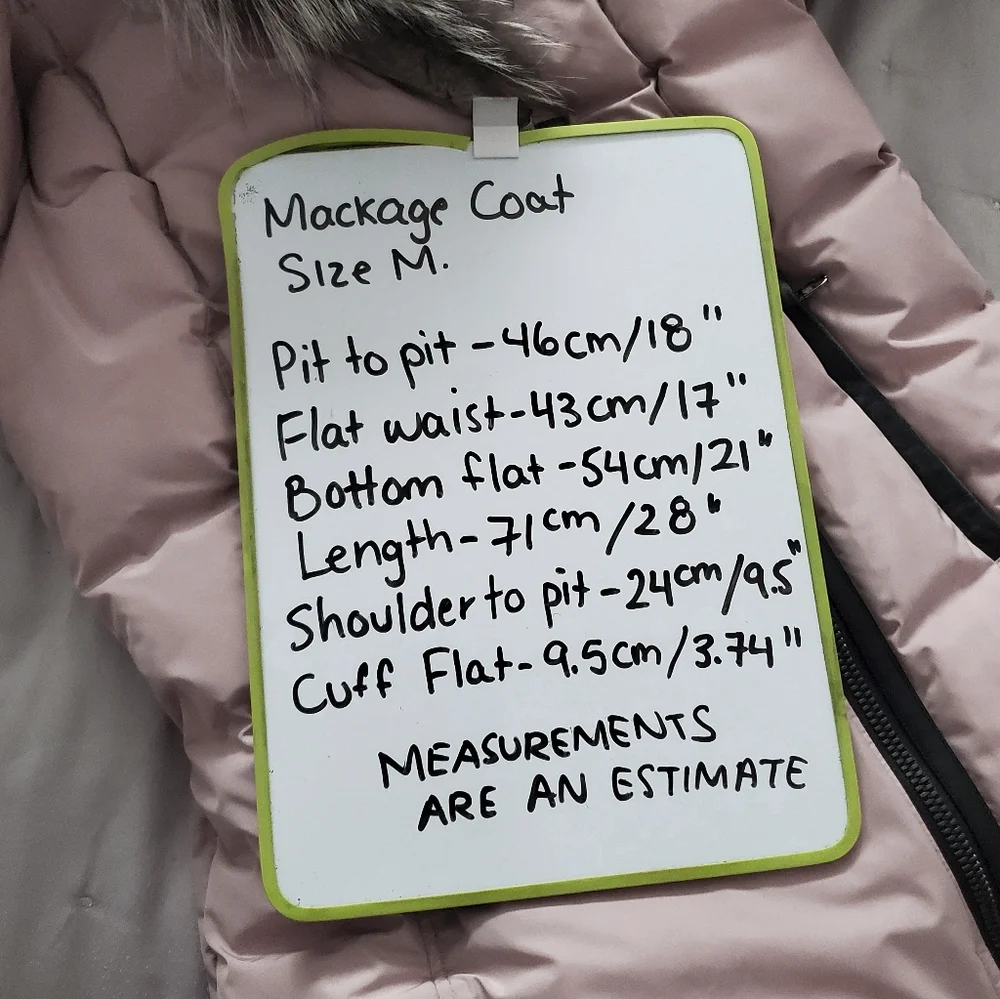 Mackage Coat
Size M.
Pit to pit - 46cm/18"
Flat waist - 43cm/17"
Bottom flat - 54cm/21"
Length - 71cm/28"
Shoulder to pit - 24cm/9.5"
Cuff Flat - 9.5cm/3.74"
MEASUREMENTS
ARE AN ESTIMATE